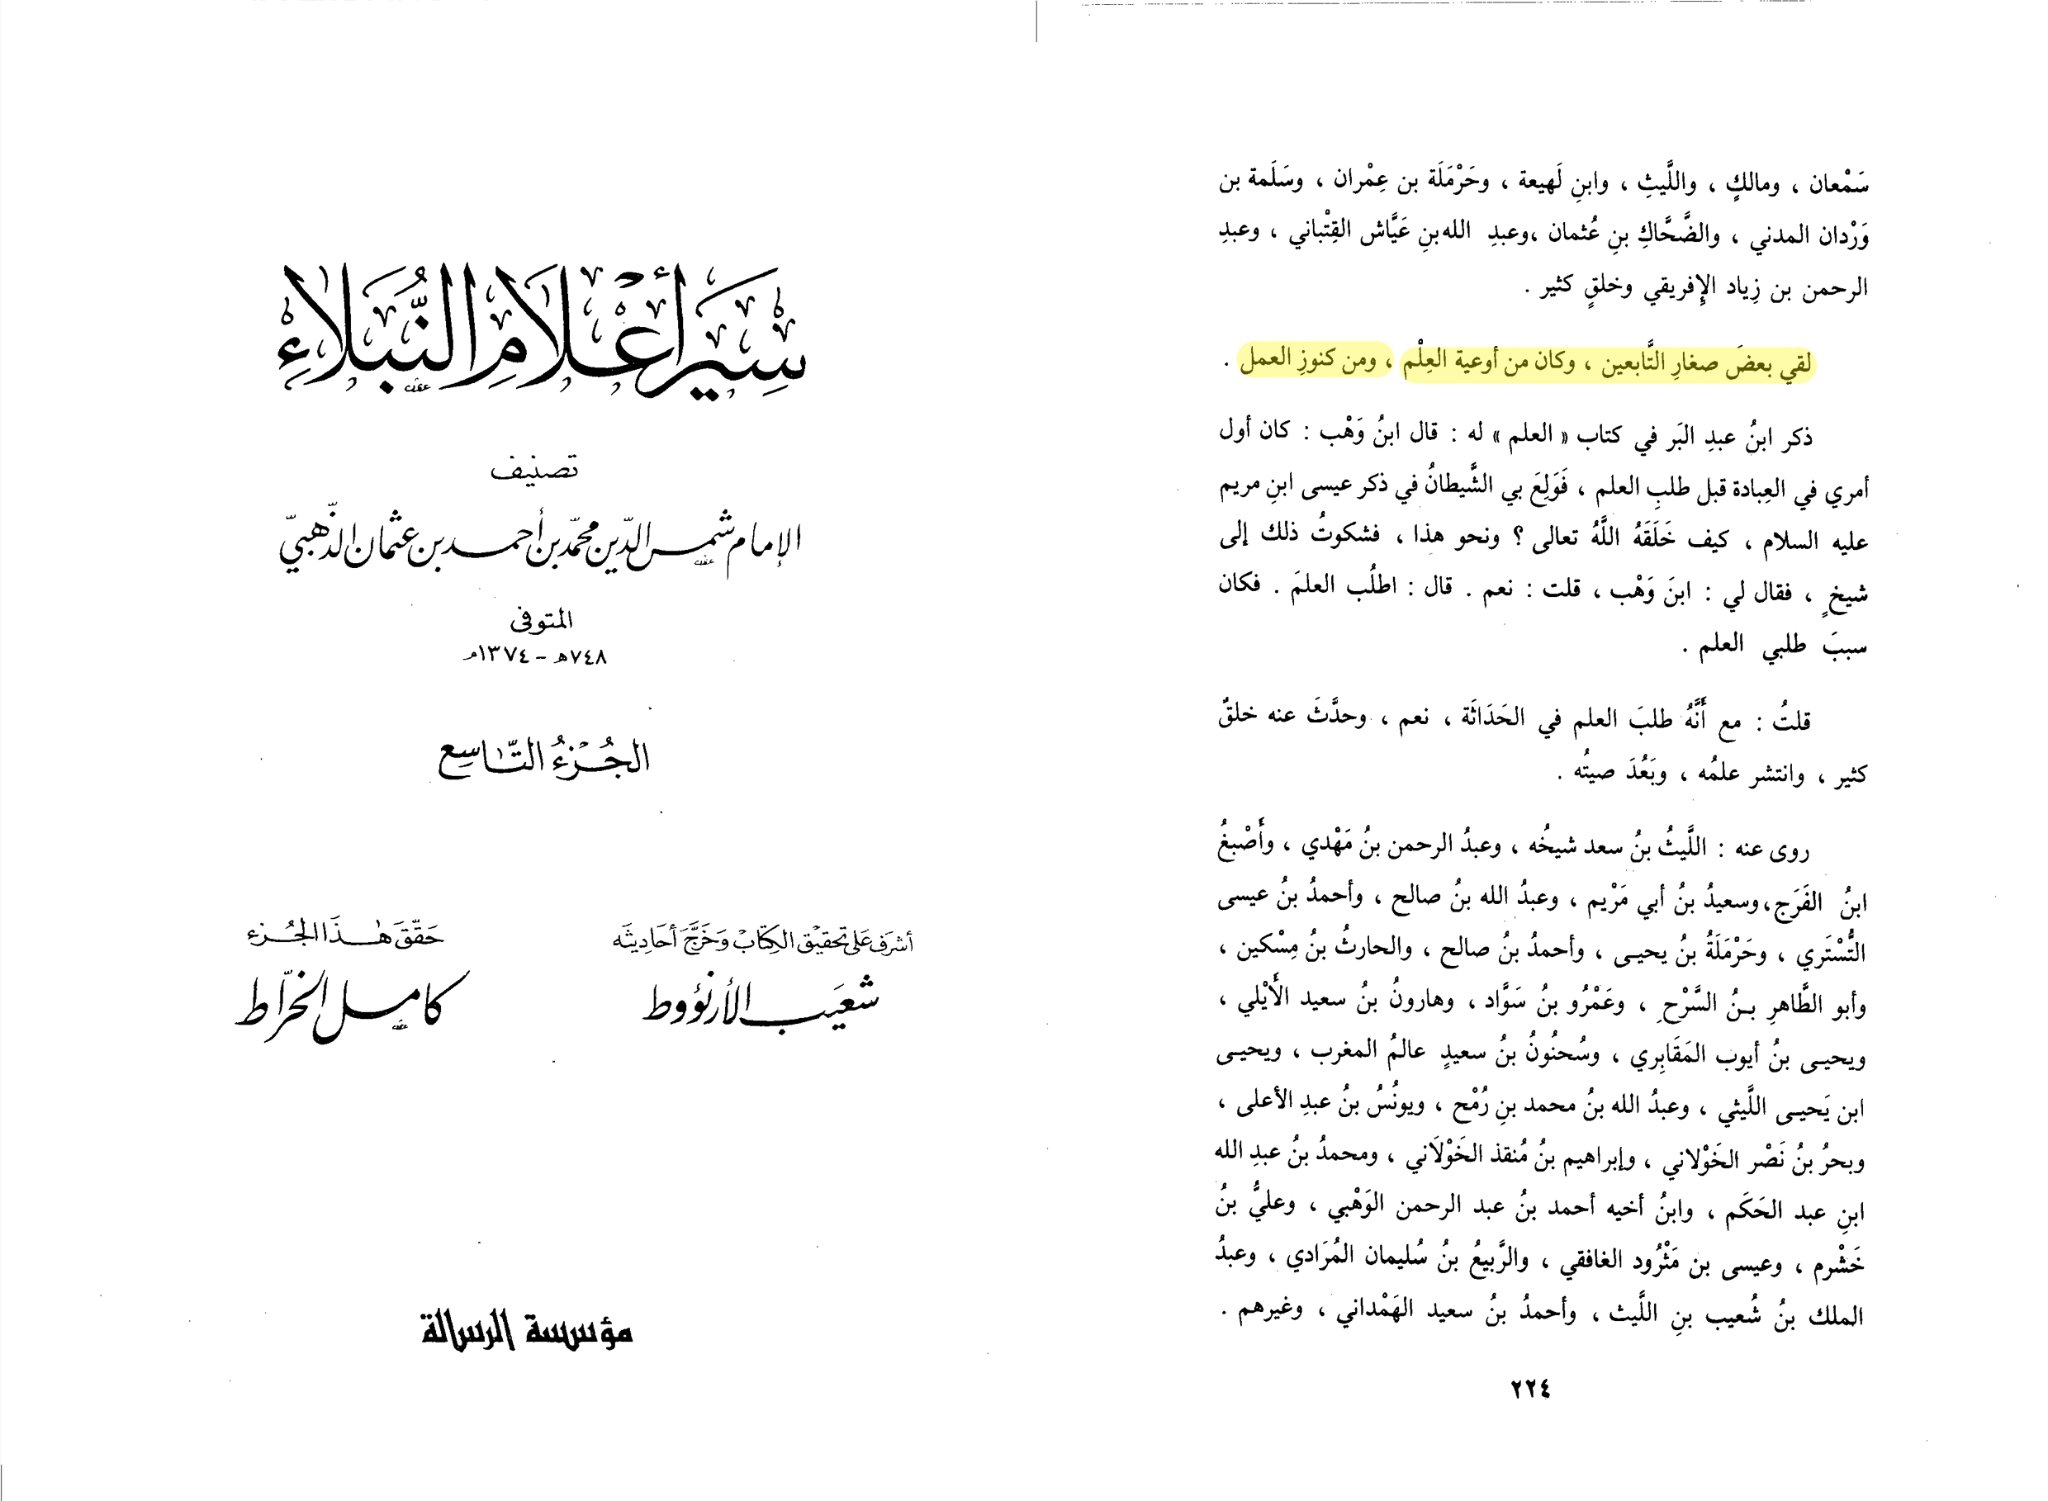 سِيَرُ أَعْلَامِ النُّبَلَاءِ
تصنيف
الإمام شمس الدّين محمّد بن أحمد بن عثمان الذّهبيّ
المتوفى
٧٤٨هـ - ١٣٧٤م
الجُزْءُ التَّاسِع
أشرَف عَلى تحقيق الكِتَاب وَخَرَّجَ أحَاديثَه
شعَيب الأرنؤوط
حَقّقَ هٰذَا الجُزء
كامل الخرّاط
مؤسسة الرسالة
سَمْعان ، ومالكٍ ، واللَّيثِ ، وابنِ لَهيعة ، وحَرْمَلَة بن عِمْران ، وسَلَمة بن
وَرْدان المدني ، والضَّحَّاكِ بنِ عُثمان ،وعبدِ الله بنِ عَيَّاش القِتْباني ، وعبدِ
الرحمن بن زِياد الإِفريقي وخلقٍ كثير .
لقي بعضَ صغارِ التَّابعين ، وكان من أوعية العِلْم ، ومن كنوزِ العمل .
ذكر ابنُ عبدِ البَر في كتاب « العلم » له : قال ابنُ وَهْب : كان أول
أمري في العِبادة قبل طلبِ العلم ، فَوَلِعَ بي الشَّيطانُ في ذكر عيسى ابنِ مريم
عليه السلام ، كيف خَلَقَهُ اللَّهُ تعالى ؟ ونحو هذا ، فشكوتُ ذلك إلى
شيخٍ ، فقال لي : ابنَ وَهْب ، قلت : نعم . قال : اطلُب العلمَ . فكان
سببَ طلبي العلم .
قلتُ : مع أَنَّهُ طلبَ العلم في الحَدَاثَة ، نعم ، وحدَّثَ عنه خلقٌ
كثير ، وانتشر علمُه ، وبَعُدَ صيتُه .
روى عنه : اللَّيثُ بنُ سعد شيخُه ، وعبدُ الرحمن بنُ مَهْدي ، وأَصْبغُ
ابنُ الفَرَج،وسعيدُ بنُ أبي مَرْيم ، وعبدُ الله بنُ صالح ، وأحمدُ بنُ عيسى
التُّسْتَري ، وحَرْمَلَةُ بنُ يحيـى ، وأحمدُ بنُ صالح ، والحارثُ بنُ مِسْكين ،
وأبو الطَّاهرِ بـنُ السَّرْحِ ، وعَمْرُو بنُ سَوَّاد ، وهارونُ بنُ سعيد الأَيْلي ،
ويحيـى بنُ أيوب المَقَابِري ، وسُحنُونُ بنُ سعيدٍ عالمُ المغرب ، ويحيـى
ابن يَحيـى اللَّيثي ، وعبدُ الله بنُ محمد بنِ رُمْح ، ويونُسُ بنُ عبدِ الأعلى ،
وبحرُ بنُ نَصْر الخَوْلاني ، وإبراهيم بنُ مُنقذ الخَوْلَاني ، ومحمدُ بنُ عبدِ الله
ابنِ عبد الحَكَم ، وابنُ أخيه أحمد بنُ عبد الرحمن الوَهْبي ، وعليُّ بنُ
خَشْرم ، وعيسى بن مَثْرُود الغافقي ، والرَّبيعُ بنُ سُليمان المُرَادي ، وعبدُ
الملك بنُ شُعيب بنِ اللَّيث ، وأحمدُ بنُ سعيد الهَمْداني ، وغيرهم .
٢٢٤